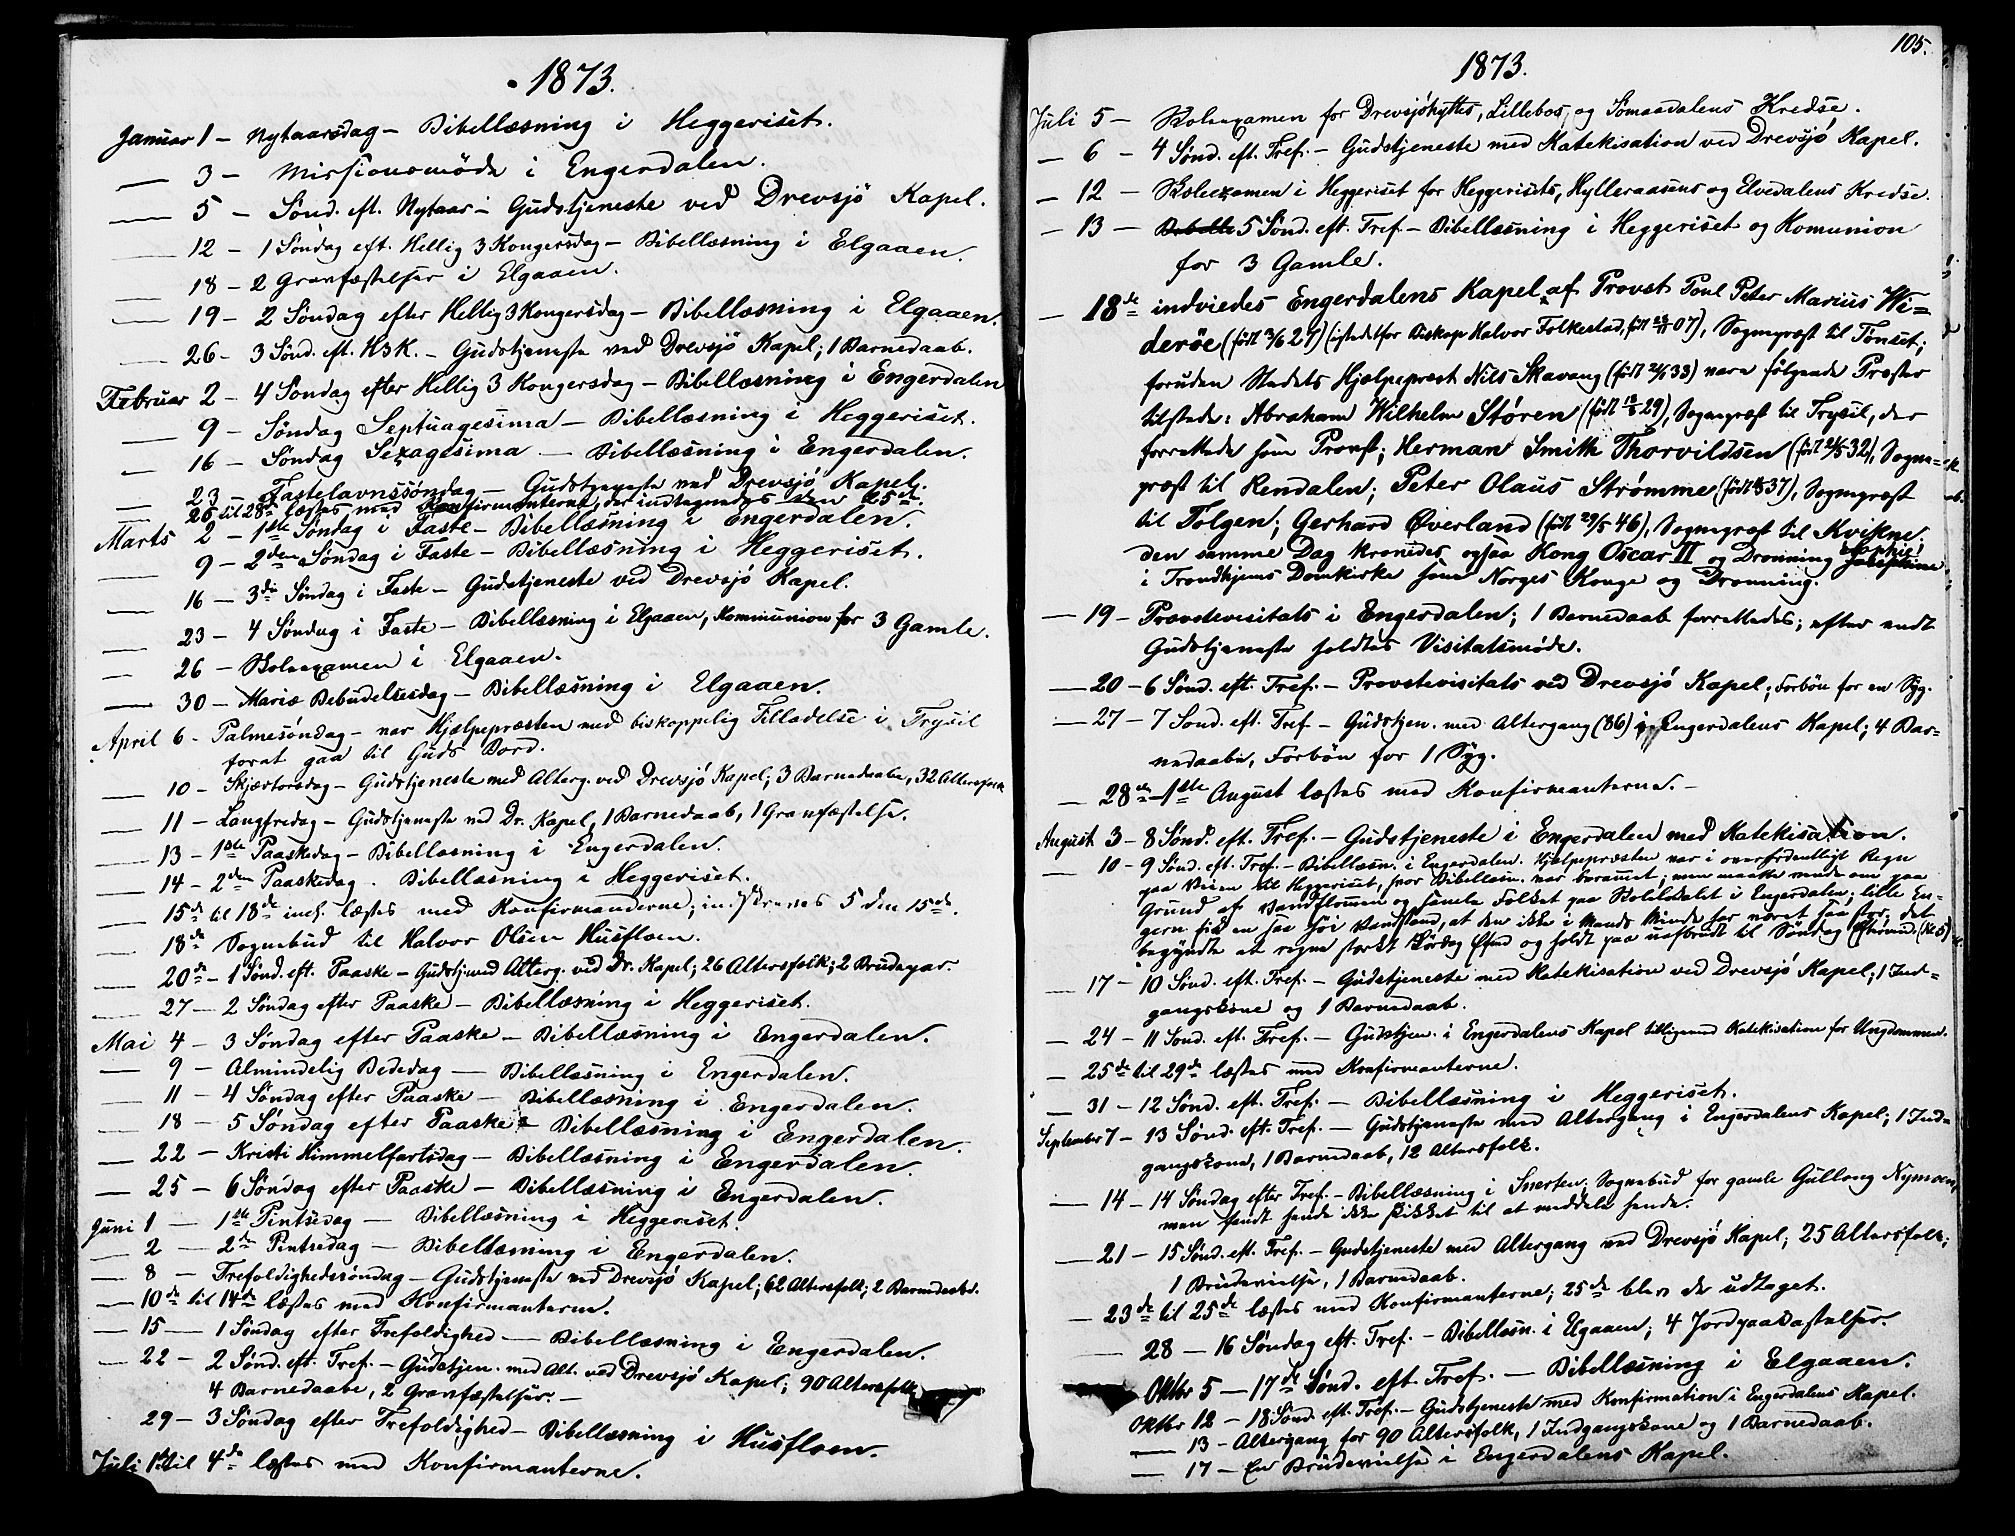 1873.
Januar 1 – Nytaarsdag – Bibellæsning i Heggeriset.
— 3 – Missionsmöde i Engerdalen.
— 5 – Sönd. eft. Nytaar – Gudstjeneste ved Drevsjö Kapel.
— 12 – 1 Söndag eft. Hellig 3 Kongersdag – Bibellæsning i Elgaaen.
— 18 – 2 Gravfæstelser i Elgaaen.
— 19 – 2 Söndag efter Hellig 3 Kongersdag – Bibellæsning i Elgaaen.
— 26 – 3 Sönd. eft. H3K. – Gudstjeneste ved Drevsjö Kapel; 1 Barnedaab.
Februar 2 – 4 Söndag efter Hellig 3 Kongersdag – Bibellæsning i Engerdalen
— 9 – Söndag Septuagesima – Bibellæsning i Heggeriset.
— 16 – Söndag Sexagesima – Bibellæsning i Engerdalen.
— 23 – Fastelavnssöndag – Gudstjeneste ved Drevsjö Kapel.
— 25 til 28de læstes med Konfirmanterne, der indtegnedes den 25de.
Marts 2 – 1ste Söndag i Faste – Bibellæsning i Engerdalen.
— 9 – 2den Söndag i Faste – Bibellæsning i Heggeriset.
— 16 – 3die Söndag i Faste – Gudstjeneste ved Drevsjö Kapel.
— 23 – 4 Söndag i Faste – Bibellæsning i Elgaaen, Kommunion for 3 Gamle.
— 26 – Skoleexamen i Elgaaen.
— 30 – Mariæ Bebudelsesdag – Bibellæsning i Elgaaen.
April 6 – Palmesöndag – var Hjælpepræsten med biskoppelig Tilladelse i Trysil
forat gaa til Guds Bord.
— 10 – Skjærtorsdag – Gudstjeneste med Alterg. ved Drevsjö Kapel; 3 Barnedaabe, 32 Altersfolk
— 11 – Langfredag – Gudstjeneste ved Dr. Kapel, 1 Barnedaab, 1 Gravfæstelse.
— 13 – 1ste Paaskedag – Bibellæsning i Engerdalen.
— 14 – 2den Paaskedag. Bibellæsning i Heggeriset.
— 15de til 18de incl. læstes med Konfirmanderne; indskreves 5 den 15de.
— 18de Sognebud til Halvor Olsen Husfloen.
— 20de – 1 Sönd. eft. Paaske – Gudstj. med Alterg. ved Dr. Kapel; 26 Altersfolk; 2 Brudepar.
— 27 – 2 Söndag efter Paaske – Bibellæsning i Heggeriset.
Mai 4 – 3 Söndag efter Paaske – Bibellæsning i Engerdalen.
— 9 – Almindelig Bededag – Bibellæsning i Engerdalen.
— 11 – 4 Söndag efter Paaske – Bibellæsning i Engerdalen.
— 18 – 5 Söndag efter Paaske – Bibellæsning i Engerdalen.
— 22 – Kristi Himmelfartsdag – Bibellæsning i Engerdalen.
— 25 – 6 Söndag efter Paaske – Bibellæsning i Engerdalen.
Juni 1 – 1ste Pintsedag – Bibellæsning i Heggeriset.
— 2 – 2den Pintsedag – Bibellæsning i Engerdalen.
— 8 – Trefoldighedssöndag – Gudstjeneste ved Drevsjö Kapel; 62 Altersfolk; 2 Barnedaabe.
— 10de til 14de læstes med Konfirmanterne.
— 15 – 1 Söndag efter Trefoldighed – Bibellæsning i Engerdalen.
— 22 – 2 Sönd. eft. Tref. – Gudstjen. med Alt. ved Drevsjö Kapel; 90 Altersfolk
4 Barnedaabe, 2 Gravfæstelser. –
29 – 3 Söndag efter Trefoldighed – Bibellæsning i Husfloen.
Juli 1ste til 4de læstes med Konfirmanterne.
105.
1873.
Juli 5 – Skoleexamen for Drevsjöhyttes, Lillebos, og Sömaadalens Kredse.
— 6 – 4 Sönd. eft. Tref. – Gudstjeneste med Katekisation ved Drevsjö Kapel.
— 12 – Skoleexamen i Heggeriset for Heggerisets, Hylleraasens og Elvedalens Kredse.
— 13 – 5 Sönd. eft. Tref. – Bibellæsning i Heggeriset og Komunion
for 3 Gamle.
— 18de indviedes Engerdalens Kapel af Provst Poul Peter Marius Wi=
deröe (født 27) (istedetfor Biskop Halvor Folkestad, født 07), Sognepræst til Tönset;
foruden Stedets Hjælpepræst Nils Skavang (født 33) vare følgende Præster
tilstede: Abraham Wilhelm Støren (født 29), Sognepræst til Trysil, der
forrettede som Provst; Herman Smith Thorvildsen (født 32), Sogne=
præst til Rendalen; Peter Olaus Strømme (født 37), Sognepræst
til Tolgen; Gerhard Øverland (født 29/5 46), Sognepræst til Kvikne.
den samme Dag kronedes ogsaa Kong Oscar II og Dronning Sophie
i Trondhjems Domkirke som Norges Konge og Dronning.
— 19 – Provstevisitats i Engerdalen; 1 Barnedaab forrettedes; efter endt
Gudstjeneste holdtes Visitatsmøde.
— 20 – 6 Sönd. eft. Tref. – Provstevisitats ved Drevsjö Kapel; Forbön for en Syg.
— 27 – 7 Sönd. eft. Tref – Gudstjen. med Altergang (86) Engerdalens Kapel; 4 Bar=
nedaabe, Forbön for 1 Syg.
— 28de – 1ste August læstes med Konfirmanterne. –
August 3 – 8 Sönd. eft. Tref. – Gudstjeneste i Engerdalen med Katekisation.
— 10 – 9 Sönd. eft. Tref. – Bibellæsn. i Engerdalen. Hjælpepræsten var i overordentligt Regn
paa Veien til Heggeriset, hvor Bibellæsn. var berammet; men maatte vende om paa
Grund af Vandflommen og samle Folket paa Skolelokalet i Engerdalen; lille En=
gern fik en saa høi Vandstand, at den ikke i Mands Minde har været saa stor; det
begyndte at regne stærkt Lördag Efterm. og holdt paa uafbrudt til Söndag Efterm. (Kl. 5)
— 17 – 10 Sönd. eft. Tref. – Gudstjeneste med Katekisation ved Drevsjö Kapel; 1 Ind=
gangskone og 1 Barnedaab.
— 24 – 11 Sönd. eft. Tref. – Gudstjen. i Engerdalens Kapel tilligemed Katekisation for Ungdommen.
— 25de til 29de læstes med Konfirmanterne.
— 31 – 12 Sönd. eft. Tref. – Bibellæsning i Heggeriset.
September 7 – 13 Sönd. eft. Tref. – Gudstjeneste med Altergang i Engerdalens Kapel; 1 Ind=
gangskone, 1 Barnedaab, 12 Altersfolk.
— 14 – 14 Söndag efter Tref. – Bibellæsning i Snerten. Sognebud for gamle Gullang Nymoen,
men fandt hende ikke skikket til at meddele hende.
— 21 – 15 Sönd. eft. Tref. – Gudstjeneste med Altergang ved Drevsjö Kapel; 25 Altersfolk;
1 Brudevielse, 1 Barnedaab.
— 23de til 25de læstes med Konfirmanterne; 25de blev de udtaget.
— 28 – 16 Söndag eft. Tref. – Bibellæsn. i Elgaaen; 4 Jordpaakastelser.
Oktbr 5 – 17de Sönd. eft. Tref. – Bibellæsning i Elgaaen.
Oktbr 12 – 18 Sönd. eft. Tref. – Gudstjeneste med Konfirmation i Engerdalens Kapel.
— 13 – Altergang for 90 Altersfolk, 1 Indgangskone og 1 Barnedaab.
— 17 – En Brudevielse i Engerdalens Kapel.